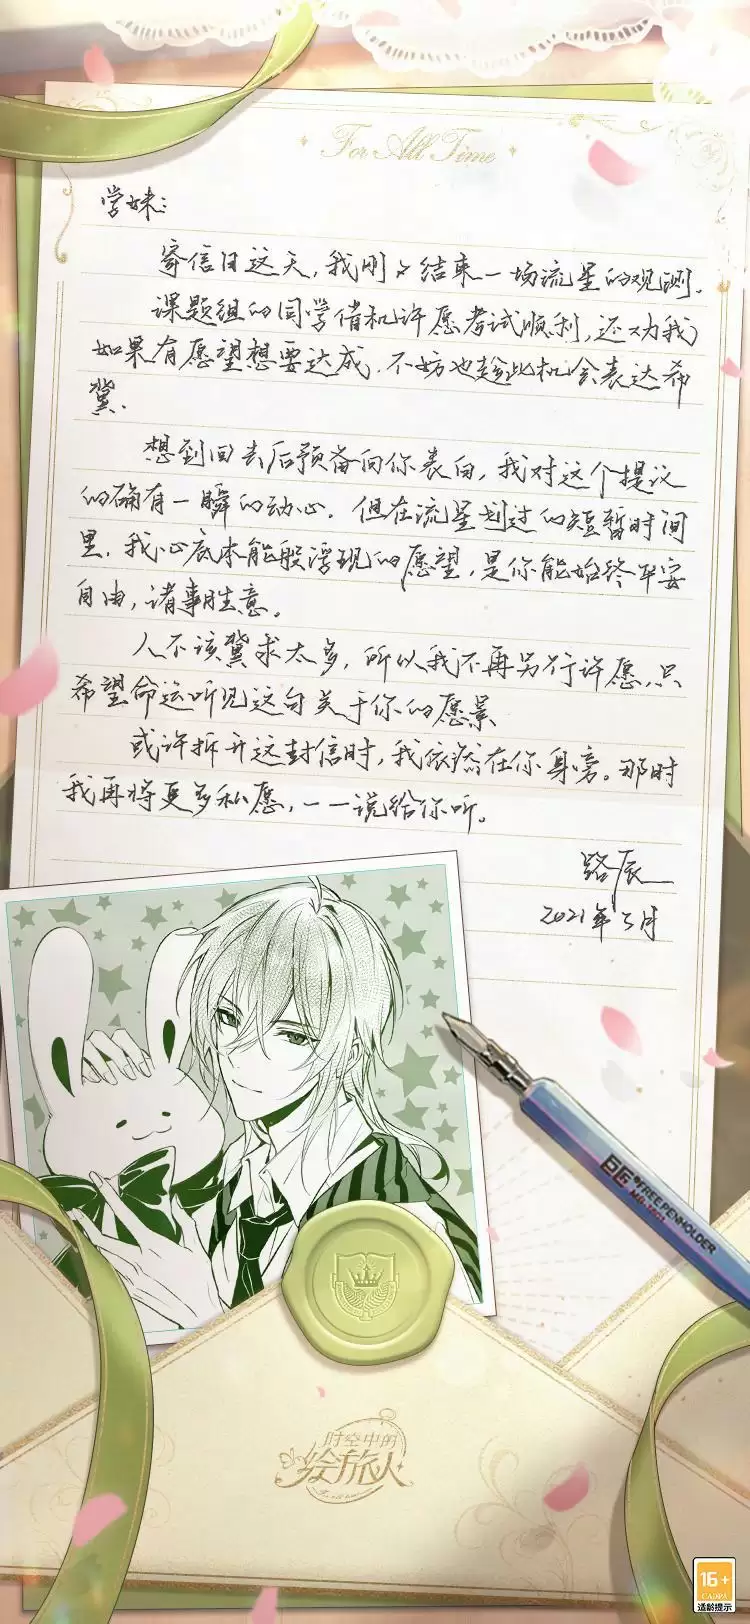 For All Time
学妹：
寄信日这天，我刚刚结束一场流星的观测。
课题组的同学借机许愿考试顺利，还劝我
如果有愿望想要达成，不妨也趁此机会表达希
冀。
想到回去后预备向你表白，我对这个提议
的确有一瞬的动心。但在流星划过的短暂时间
里，我心底本能般浮现的愿望，是你能始终平安
自由，诸事胜意。
人不该冀求太多，所以我不再另行许愿，只
希望命运听见这句关于你的愿景
或许拆开这封信时，我依然在你身旁。那时
我再将更多私愿，一一说给你听。
路辰
2021年5月
FREEPENHOLDER
时空中的
绘旅人
16+
CADPA
适龄提示